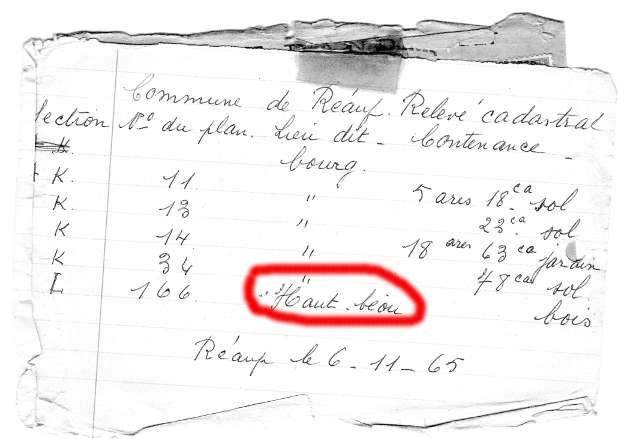 Commune de Réaup. Relevé cadastral
Section Nos du plan. Lieu dit - Contenance -
bourg.
K. 11. " 5 ares 18 ca sol
K. 13 " 23 ca sol
K. 14 " 18 ares 63 ca jardin
K 34 " 78 ca sol
I 166. "Haut-béou bois
Réaup le 6-11-65